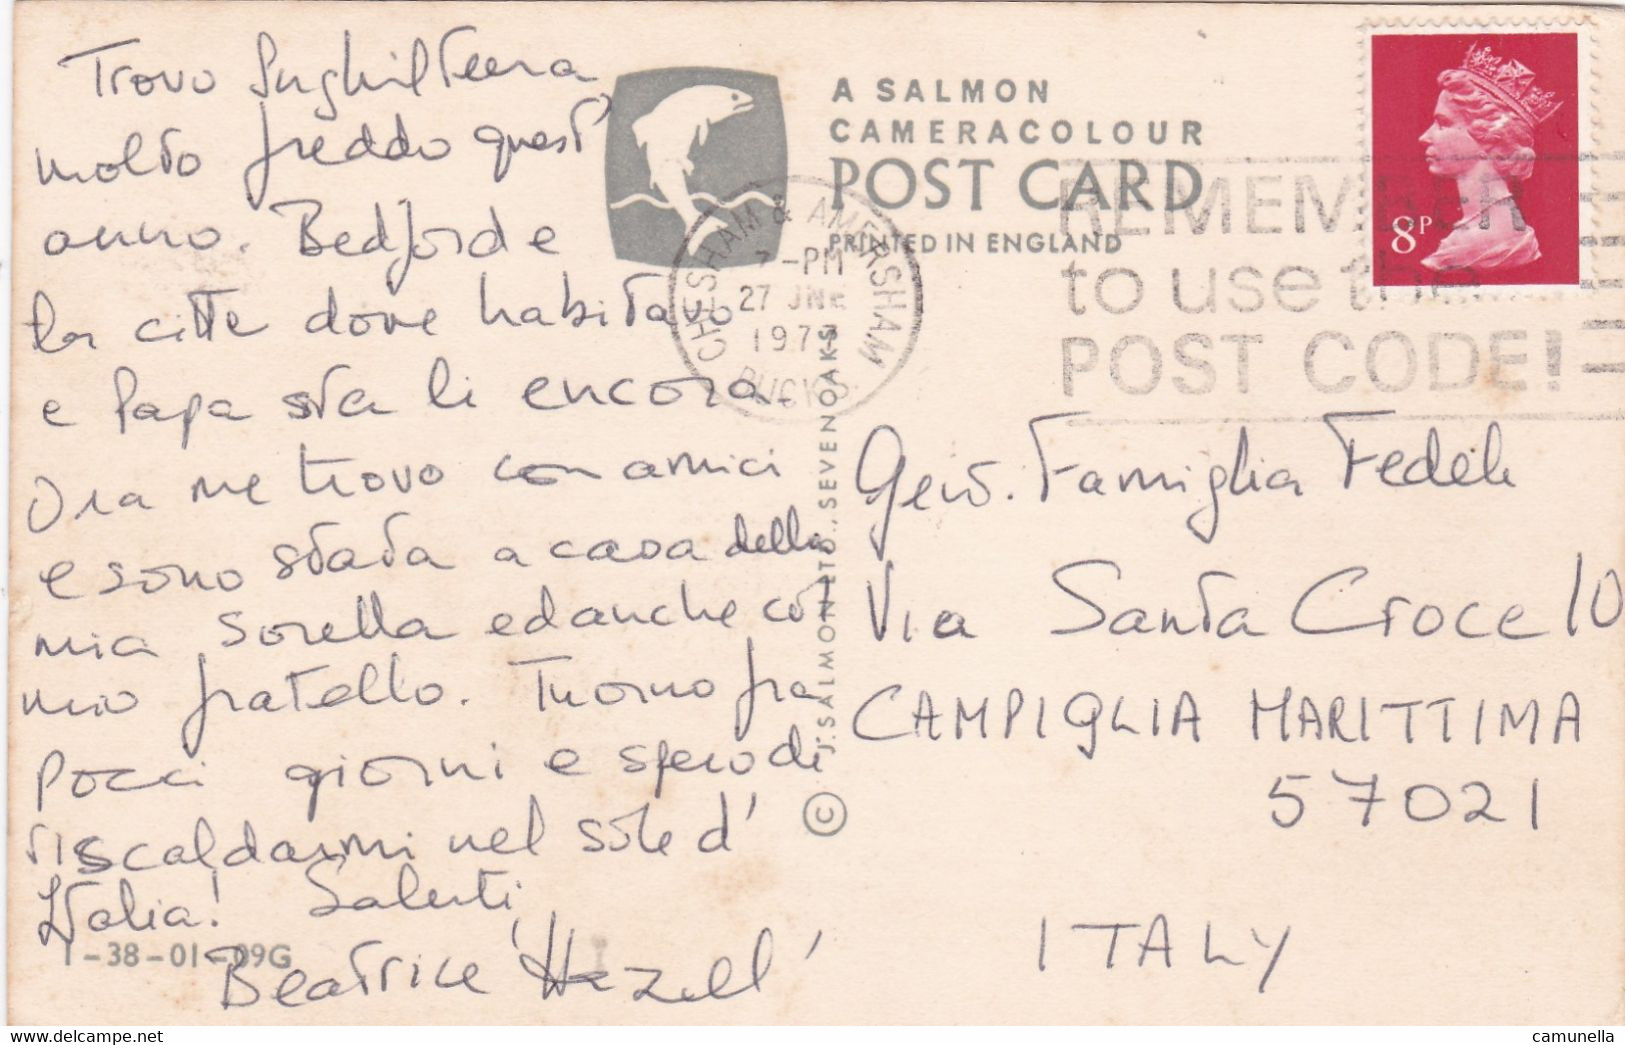 Trovo Inghilterra
molto freddo quest'
anno. Bedford e
la citte dove habitavo
e Papa sta li encora.
Ora me trovo con amici
e sono stata a casa della
mia sorella ed anche con
mio fratello. Tuorno fra
pocci giorni e spero di
riscaldarmi nel sole d'
Italia! Saluti,
Beatrice 'Hazell'
1-38-01-09G
A SALMON
CAMERACOLOUR
POST CARD
PRINTED IN ENGLAND
CHESHAM & AMERSHAM
7-PM
27 JNE
BUCKS
REMEMBER
to use the
POST CODE!
8P
© J. SALMON LTD., SEVENOAKS
Famiglia Fedele
Via Santa Croce 10
CAMPIGLIA MARITTIMA
57021
ITALY
camunella